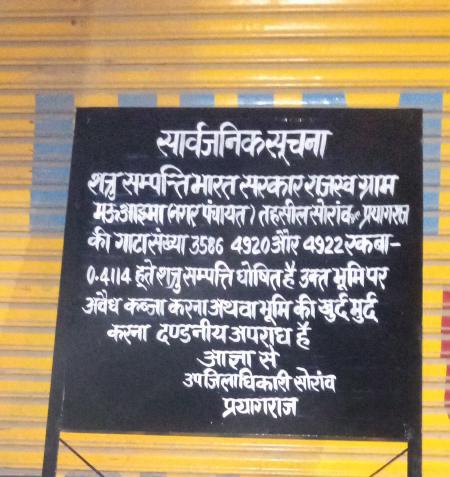 सार्वजनिक सूचना
शत्रु सम्पत्ति भारत सरकार राजस्व ग्राम
मऊआइमा (नगर पंचायत) तहसील सोरांव प्रयागराज
की गाटा संख्या 3586 4920 और 4922 रकबा-
0.4114 हे शत्रु सम्पत्ति घोषित है उक्त भूमि पर
अवैध कब्जा करना अथवा भूमि की खुर्द मुर्द
करना दण्डनीय अपराध है
आज्ञा से
उपजिलाधिकारी सोरांव
प्रयागराज